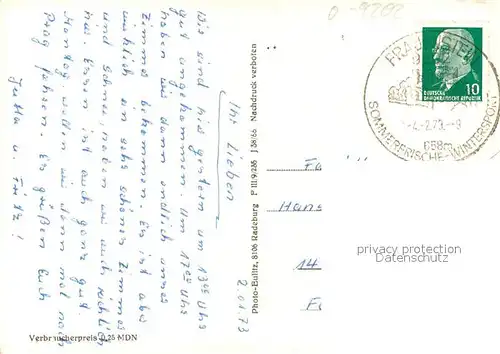 0-9202
2.01.73
Ihr Lieben
Wir sind hier gestern um 13⁰⁰ Uhr
gut angekommen. Um 17⁰⁰ Uhr
haben wir dann endlich unser
Zimmer bekommen. Es ist aber
wirklich ein sehr schönes Zimmer
und Schnee haben wir auch reichlich
hier. Essen ist auch ganz gut.
Montag wollen wir dann mal nach
Prag fahren. Es grüßen Euch
Jutta u. Fritz!
Verbraucherpreis 0,25 MDN
Photo-Eulitz, 8106 Radeburg P III/9/285 J 38/66 Nachdruck verboten
DEUTSCHE
DEMOKRATISCHE REPUBLIK
10
FRAUENSTEIN
-4.-2.73.-9
658m
SOMMERFRISCHE-WINTERSPORT
Fa
Hans
14
privacy protection